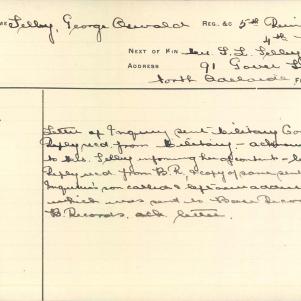 ME Selby, George Oswald REG. &C 5th Rein
4th
NEXT OF KIN Mrs. S. L. Selby
ADDRESS 91 Gover S
North Adelaide F
Letter of Inquiry sent Military Co
Reply recd from Military - ackno
to Mrs. Selby informing her of contents - le
Reply recd from B.R., & copy of same sent
Inquirer's son called & left own addre
which was sent to Base Recor
B Records. ack. letter.